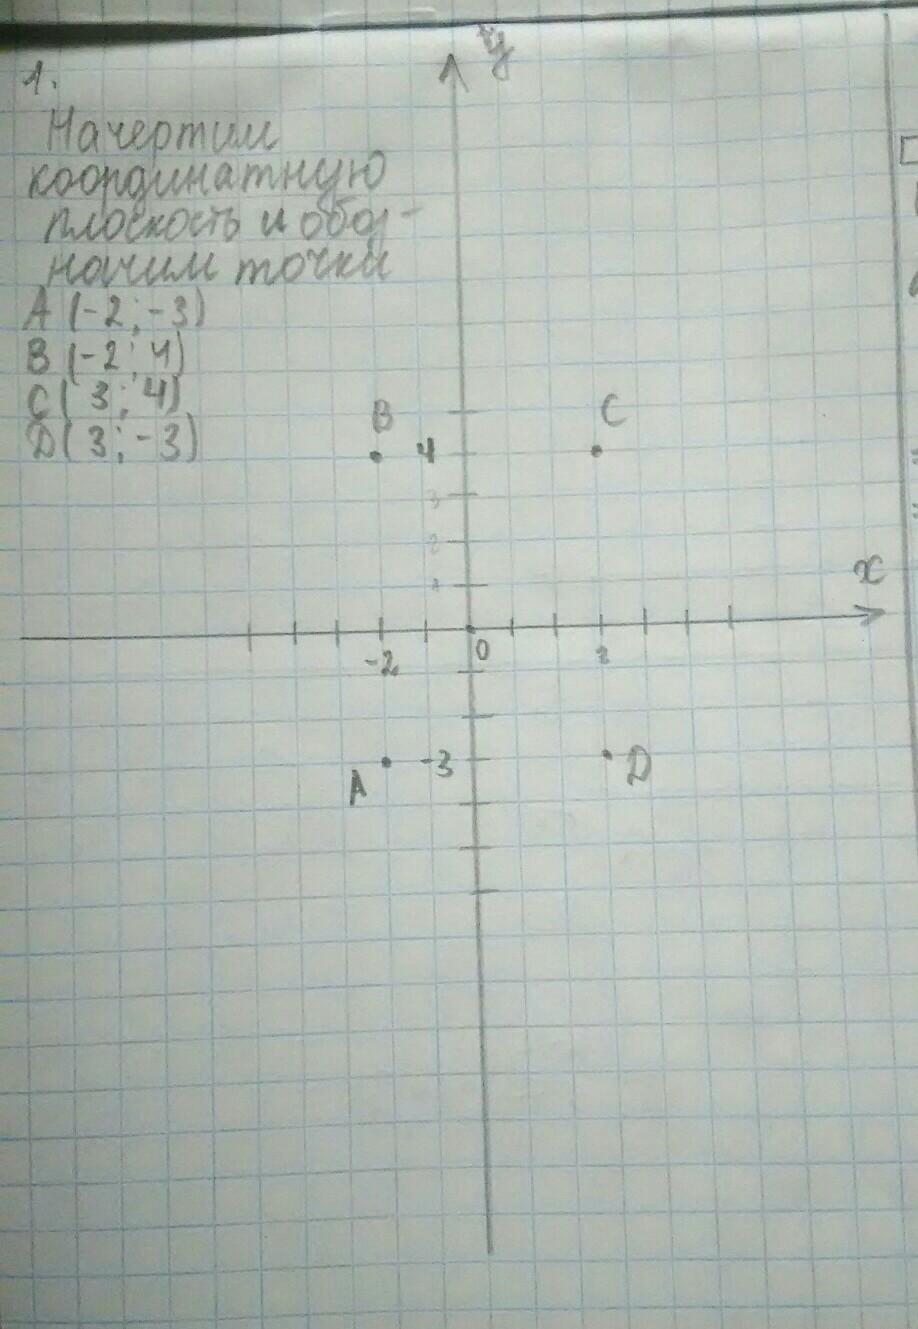 1.
Начертим
координатную
плоскость и обоз-
начим точки
A (-2; -3)
B (-2; 4)
C( 3; 4)
D( 3; -3)
y
B
C
4
3
2
1
x
-2
0
2
A
-3
D